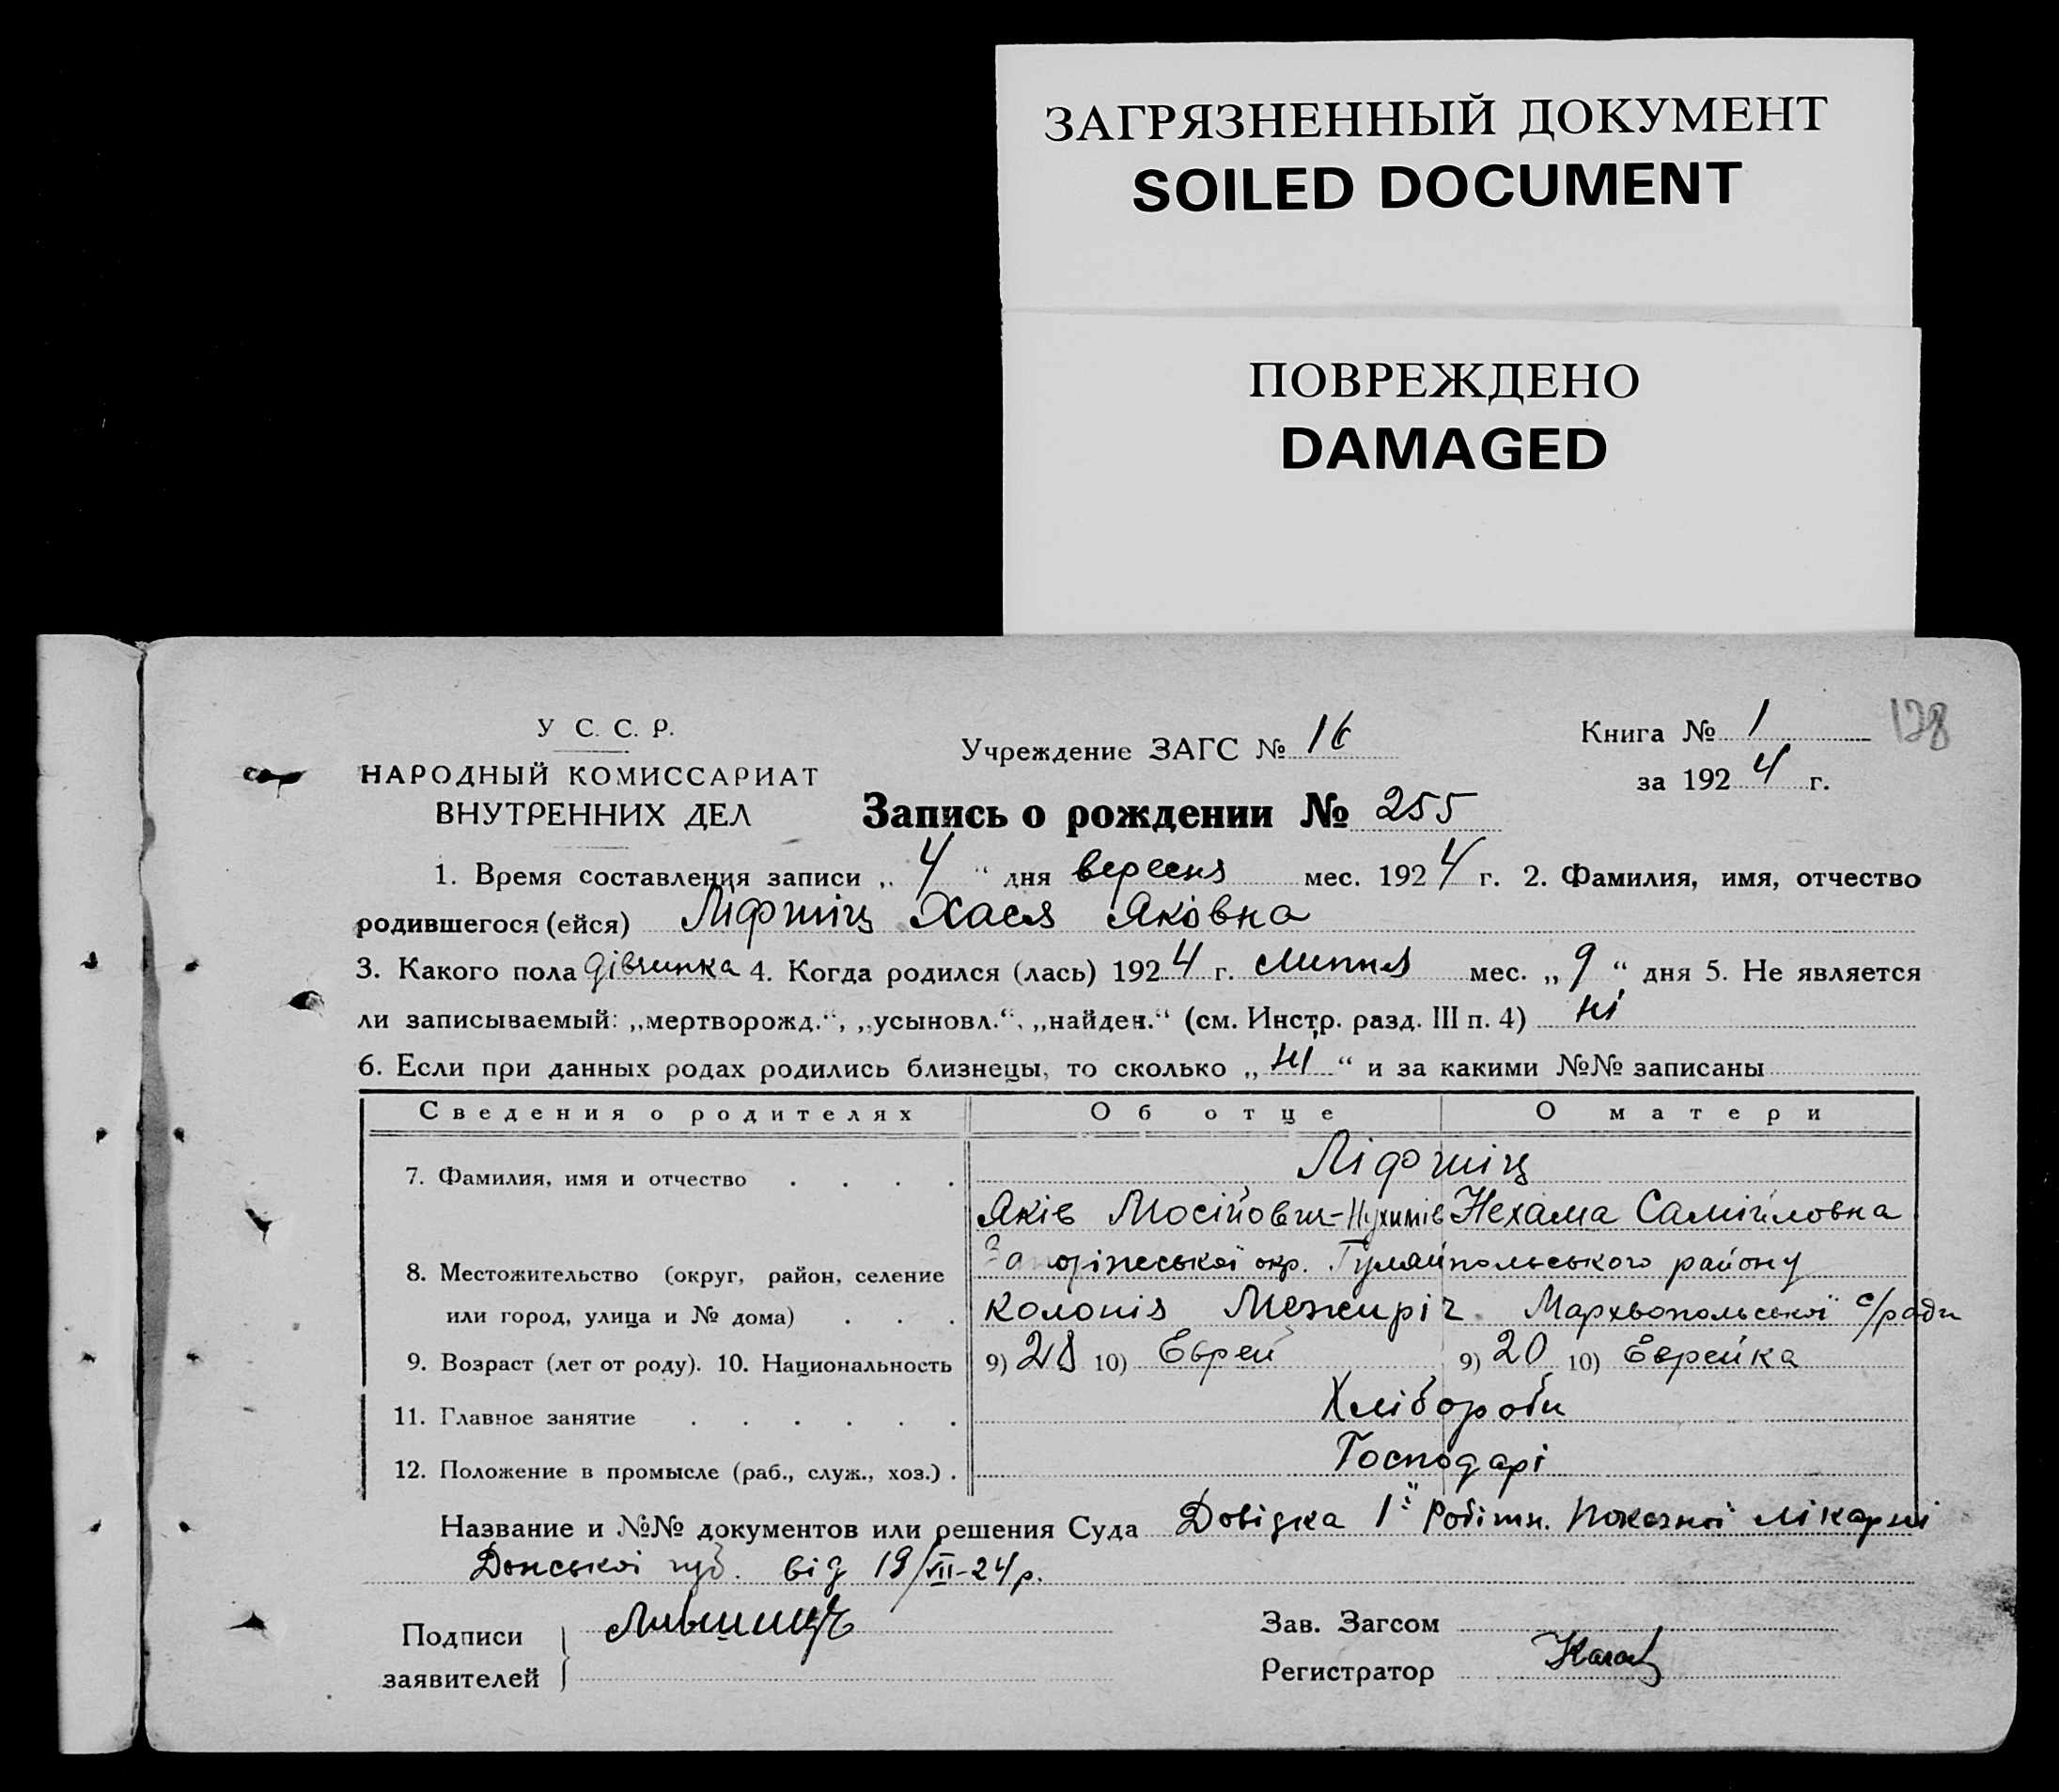 ЗАГРЯЗНЕННЫЙ ДОКУМЕНТ
SOILED DOCUMENT
ПОВРЕЖДЕНО
DAMAGED
128
У С. С. Р.
НАРОДНЫЙ КОМИССАРИАТ
ВНУТРЕННИХ ДЕЛ
Учреждение ЗАГС № 16
Книга № 1
за 1924 г.
Запись о рождении № 255
1. Время составления записи „ 4 “ дня вересня мес. 1924 г. 2. Фамилия, имя, отчество
родившегося (ейся) Ліфшіц Хася Яківна
3. Какого пола дівчинка 4. Когда родился (лась) 1924 г. липня мес. „ 9 “ дня 5. Не является
ли записываемый: „мертворожд.“, „усыновл.“, „найден.“ (см. Инстр. разд. III п. 4) ні
6. Если при данных родах родились близнецы, то сколько „ ні “ и за какими №№ записаны
Сведения о родителях Об отце О матери
7. Фамилия, имя и отчество . . . . Ліфшіц
Яків Мосійович-Нухимів Нехама Самійловна
8. Местожительство (округ, район, селение Запоріжської окр. Гуляйпольського району
или город, улица и № дома) . . . Колонія Межиріч Мархвопольської с/ради
9. Возраст (лет от роду). 10. Национальность 9) 28 10) Еврей 9) 20 10) Еврейка
11. Главное занятие . . . . . . Хлібороби
12. Положение в промысле (раб., служ., хоз.) . Господарі
Название и №№ документов или решения Суда Довідка 1ї Робітн. лікарні
Донської губ. від 19/VII-24 р.
Подписи
заявителей
Лившиц
Зав. Загсом
Регистратор